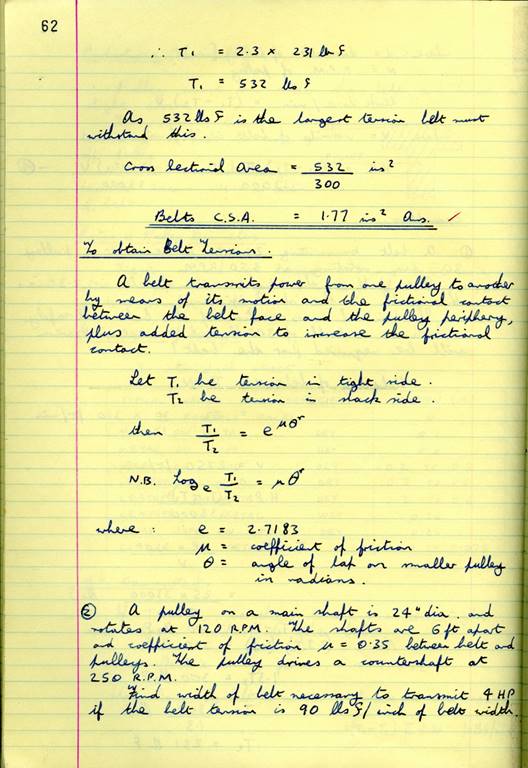 62
∴ T₁ = 2.3 × 231 lbs f
T₁ = 532 lbs f
As 532 lbs f is the largest tension belt must
withstand this.
Cross Sectional Area = 532/300 ins²
Belts C.S.A. = 1.77 ins² Ans. ✓
To obtain Belt Tensions.
A belt transmits power from one pulley to another
by means of its motion and the frictional contact
between the belt face and the pulley periphery,
plus added tension to increase the frictional
contact.
Let T₁ be tension in tight side.
T₂ be tension in slack side.
then T₁/T₂ = e^μθʳ
N.B. Logₑ T₁/T₂ = μθʳ
where : e = 2.7183
μ = coefficient of friction
θ = angle of lap on smaller pulley
in radians.
② A pulley on a main shaft is 24" dia. and
rotates at 120 R.P.M. The shafts are 6 ft apart
and coefficient of friction μ = 0.35 between belt and
pulleys. The pulley drives a countershaft at
250 R.P.M.
Find width of belt necessary to transmit 4 HP
if the belt tension is 90 lbs f/inch of belt width.